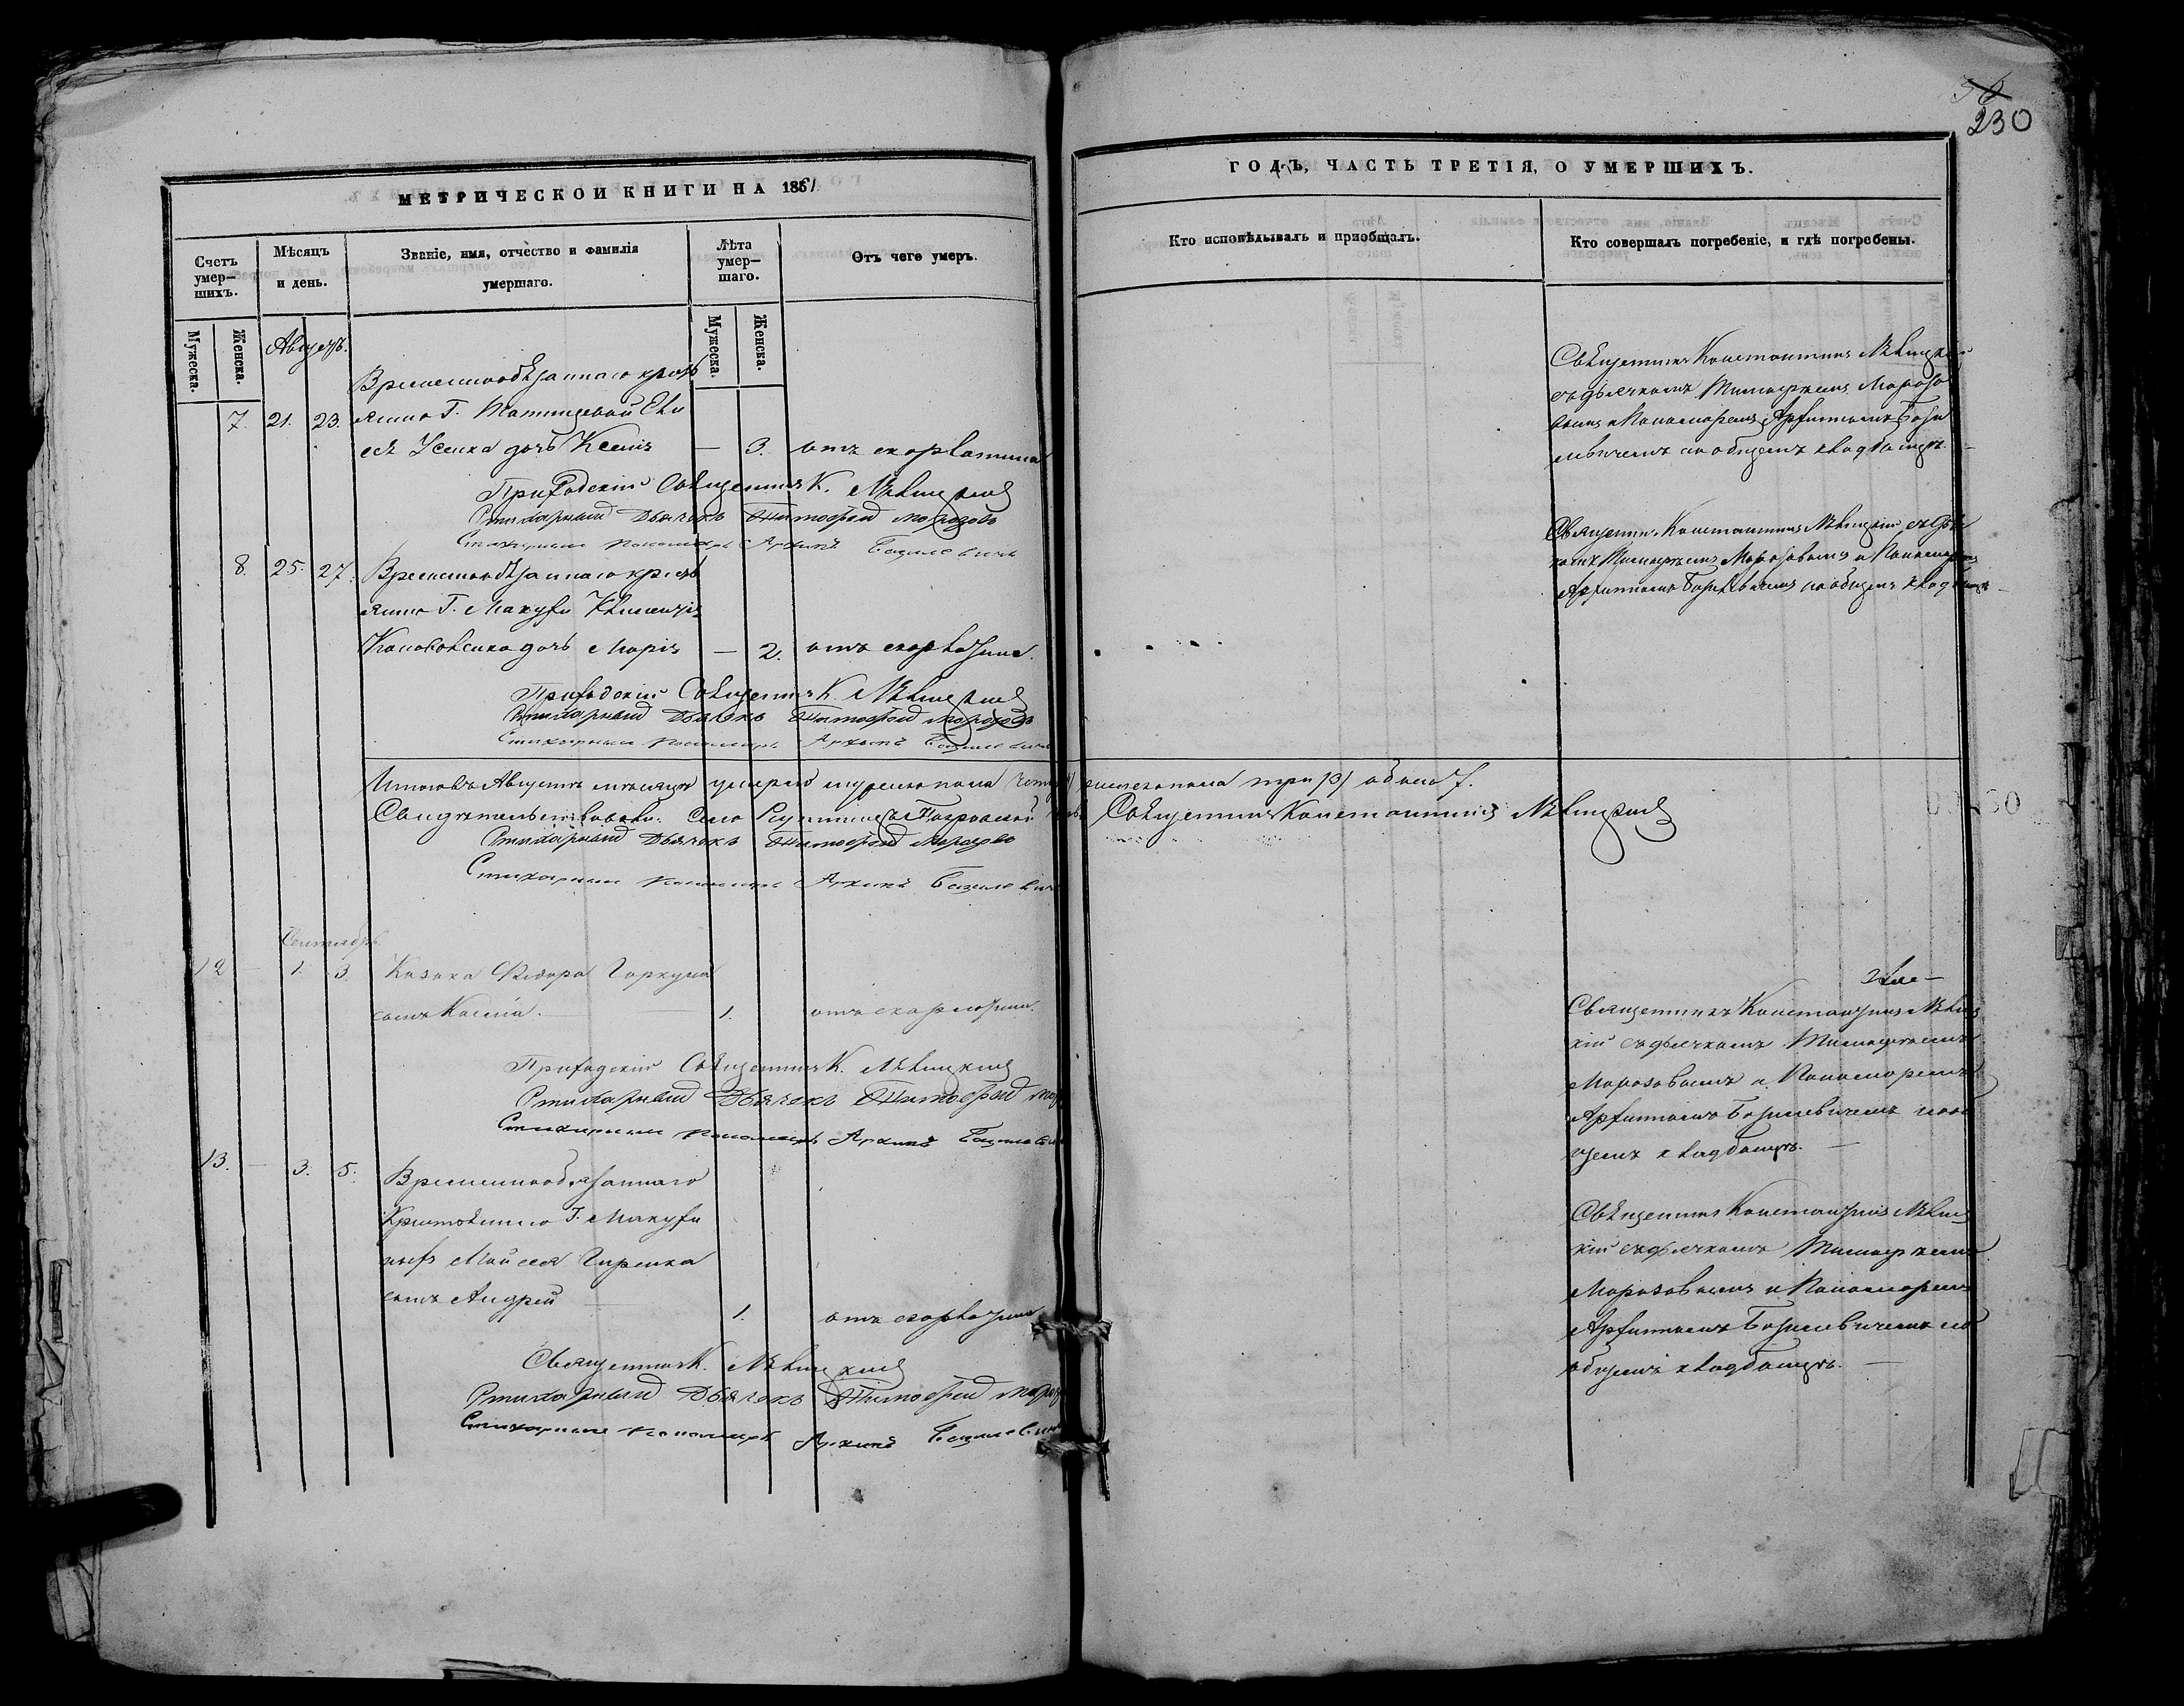 230
МЕТРИЧЕСКОЙ КНИГИ НА 1861
ГОДЪ, ЧАСТЬ ТРЕТІЯ, О УМЕРШИХЪ.
Счетъ умер-шихъ.
Мужеска.
Женска.
Мѣсяцъ и день.
Званіе, имя, отчество и фамилія умершаго.
Лѣта умер-шаго.
Мужеска.
Женска.
Отъ чего умеръ.
Кто исповѣдывалъ и пріобщалъ.
Кто совершалъ погребеніе, и гдѣ погребены.
Августъ.
Временнообязаннаго кресть
7. 21. 23. янина Г.
Усенка дочь Ксенія — 3. отъ скарлатины
Священникъ Константинъ
съ дьячкомъ Тимофеемъ Морозо
вымъ и Пономаремъ Архипомъ Бази
левичемъ на общемъ кладбищѣ.
Приходскій Священникъ К.
Стихарный Дьячокъ Тимофей Морозовъ
Стихарный Пономарь Архипъ Базилевичъ
8. 25. 27. Временнообязаннаго кресть
янина Г. Макухи
дочь Марія — 2. отъ скарлатины.
Священникъ Константинъ съ Дьяч
комъ Тимофеемъ Морозовымъ и Пономаремъ
Архипомъ Базилевичемъ на общемъ кладбищѣ
Приходскій Священникъ К.
Стихарный Дьячокъ Тимофей Морозовъ
Стихарный Пономарь Архипъ Базилевичъ
Итого въ Августѣ мѣсяцѣ умерло мужеска пола женска пола три /3/ обоего 7.
Свидѣтельствовали: Села Покровской Священникъ Константинъ
Стихарный Дьячокъ Тимофей Морозовъ
Стихарный Пономарь Архипъ Базилевичъ
Сентябрь
12 — 1. 3. Казака Ѳедора Горкуши
сынъ Косма. — 1. отъ скарлатины.
Священникъ Константинъ
кій съ дьячкомъ Тимофеемъ
Морозовымъ и Пономаремъ
Архипомъ Базилевичемъ на об
щемъ кладбищѣ. —
Приходскій Священникъ К.
Стихарный Дьячокъ Тимофей
Стихарный Пономарь Архипъ
13. — 3. 5. Временнообязаннаго
Крестьянина Г. Макухи
Мойсея Гиренка
сынъ Андрей — 1. отъ скарлатины
Священникъ Константинъ
кій съ дьячкомъ Тимофеемъ
Морозовымъ и Пономаремъ
Архипомъ Базилевичемъ на
общемъ кладбищѣ. —
Священникъ К.
Стихарный Дьячокъ Тимофей
Стихарный Пономарь Архипъ